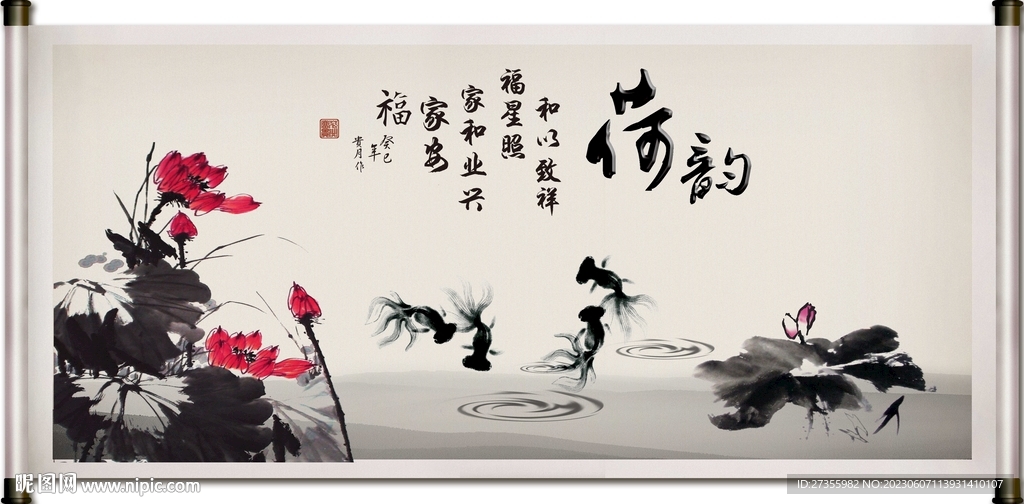 荷韵
和以致祥
福星照
家和业兴
家安
福
癸巳
年
贵月作
昵图网 www.nipic.com
ID:27355982 NO:20230607113931410107